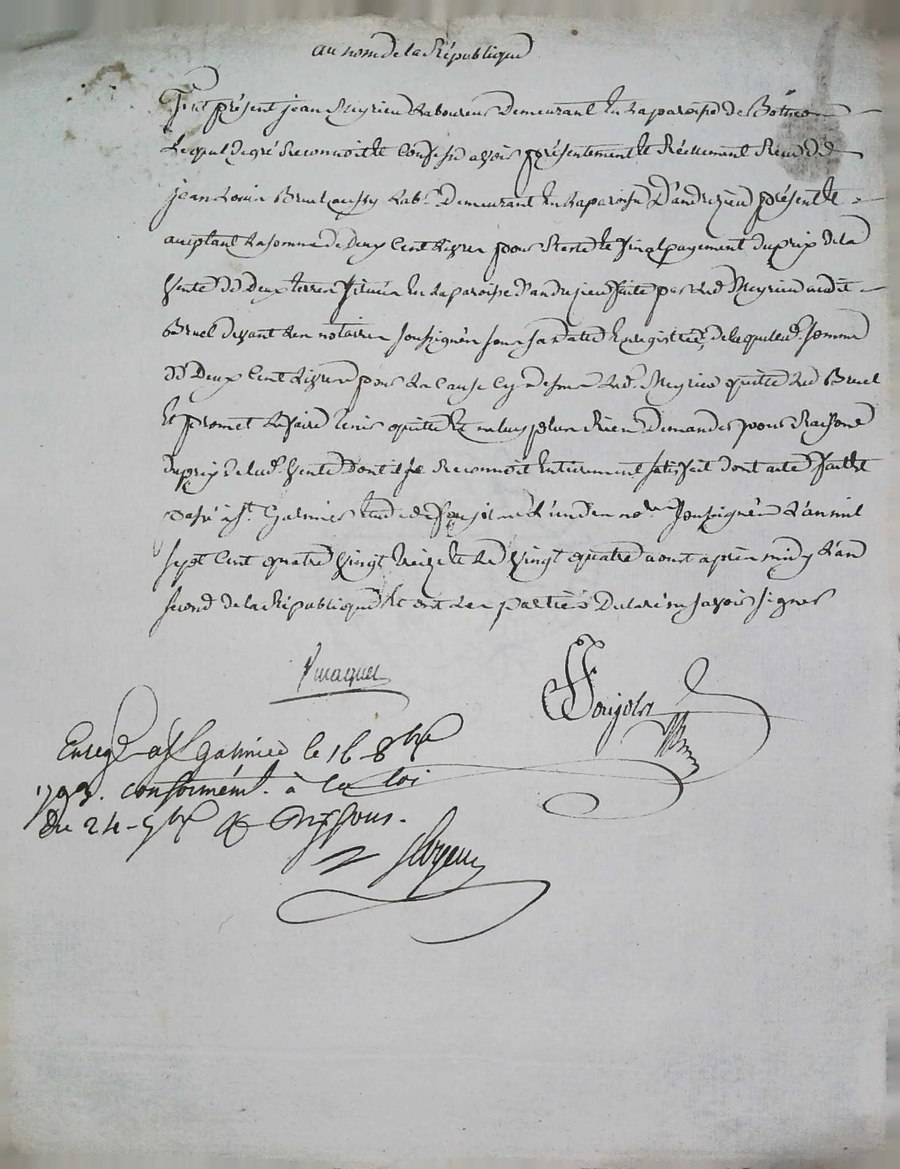 au nom de la République
Fut présent jean Meyrieu Laboureur Demeurant En La paroisse de Bothéon
Lequel de gré Reconnoit et Confesse avoir présentement et Réellement Reçu de
jean Louis Bruel Lab. Demeurant En La paroisse D'andrezieu présent et
aceptant La somme de Deux Cent Livres pour Reste et final payement du prix de la
Vente de Deux terres situées En La paroisse d'andrezieu faite par Led. Meyrieu audit
Bruel devant Les notaires soussignés sous sa date Enregistrée, de laquelle d. somme
de Deux Cent Livres pour La Cause Cy Dessus Led. Meyrieu quitte Led. Bruel
Et promet Le faire tenir quitte Et ne luy plus Rien Demander pour Raison
du prix de lad. Vente Dont il se Reconnoit Entierement satisfait dont acte fait et
passé à St. Galmier Etude de L'un des no.res soussignés L'an mil
sept Cent quatre Vingt treize et Le Vingt quatre aoust après midy L'an
second de la République Et ont Les parties Declaré ne savoir signer
Enregé à St Galmier le 16 8bre
1793. conformémt. à la loi
du 24 - 9bre R dix sous.